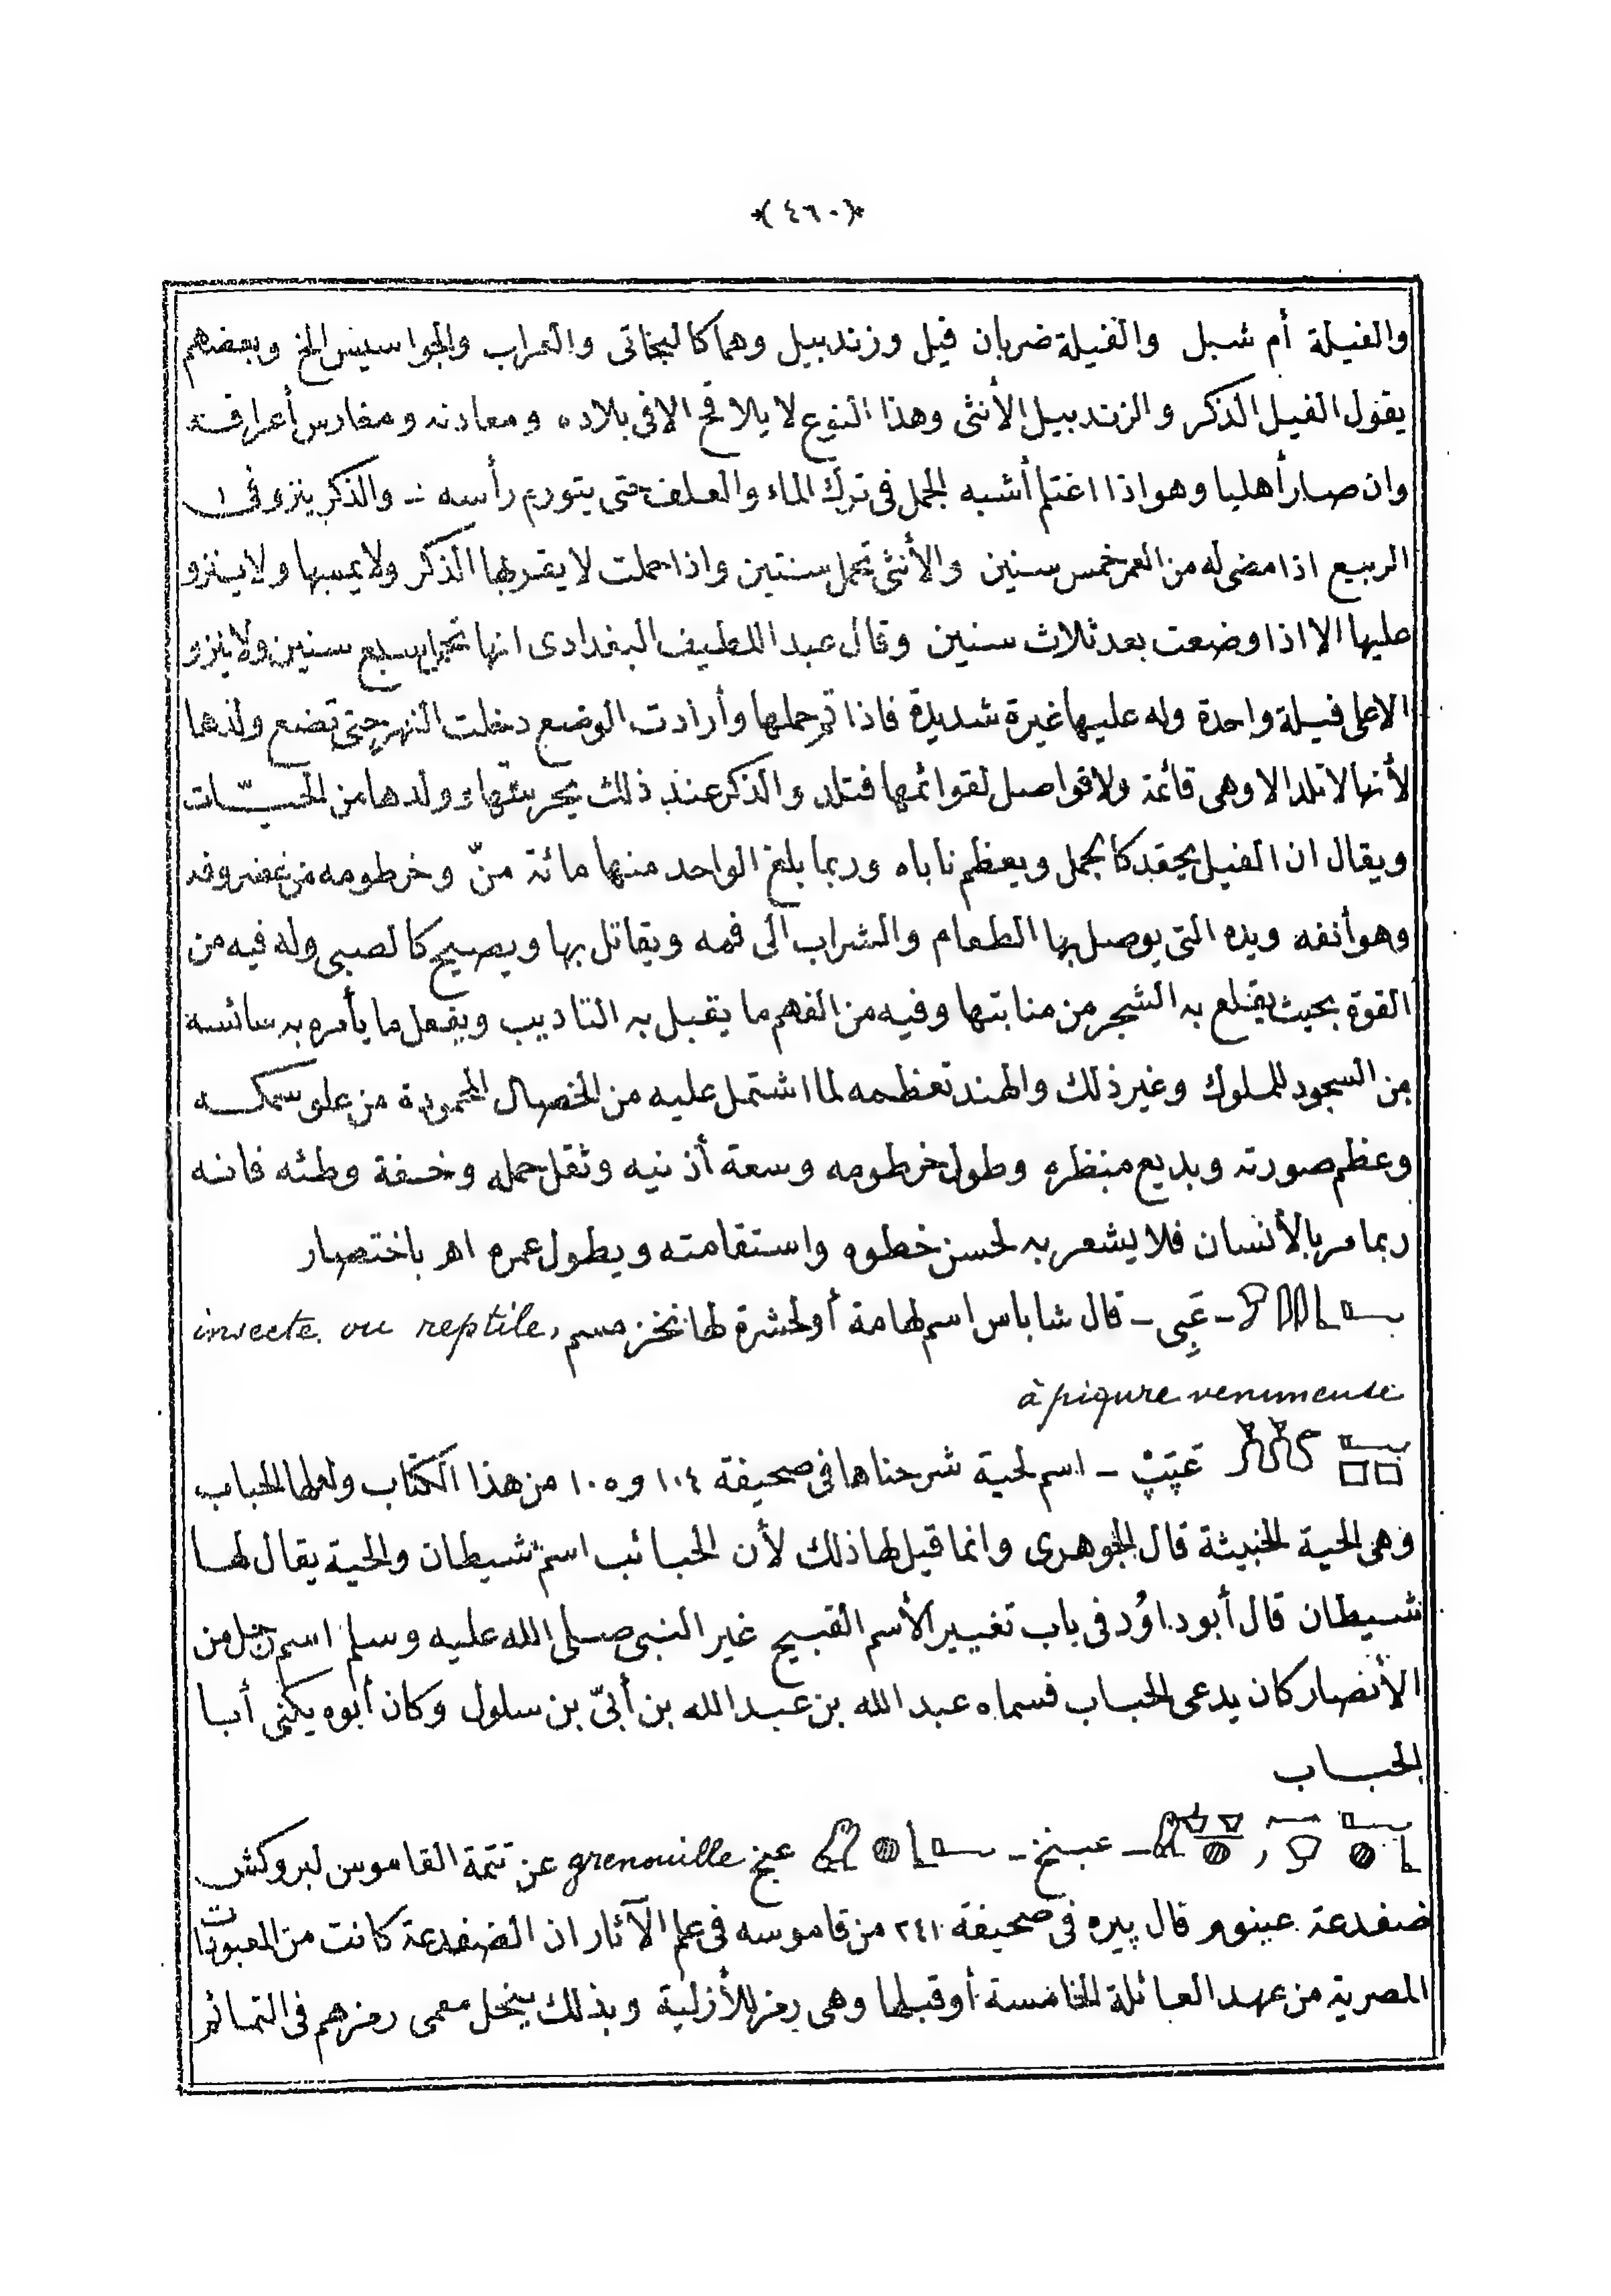 ﴿٤٦٠﴾
والفيلة أم شبل والفيلة ضربان فيل وزندبيل وهما كالبخاتى والعراب والجواسيس الخ وبعضهم
يقول الفيل الذكر والزندبيل الأنثى وهذا النوع لا يلاقح الا فى بلاده ومعادنه ومغارس أعراقه
وان صار أهليا وهو اذا اغتلم أشبه الجمل فى ترك الماء والعلف حتى يتورم رأسه - والذكر ينزو فى
الربيع اذا مضى له من العمر خمس سنين والأنثى تحمل سنتين واذا حملت لا يقربها الذكر ولا يمسها ولا ينزو
عليها الا اذا وضعت بعد ثلاث سنين وقال عبد اللطيف البغدادى انها تحمل سبع سنين ولا ينزو
الا على فيلة واحدة وله عليها غيرة شديدة فاذا تم حملها وأرادت الوضع دخلت النهر حتى تضع ولدها
لأنها لا تلد الا وهى قائمة ولا فواصل لقوائمها فتلد والذكر عند ذلك يحرسها وولدها من الحيّات
ويقال ان الفيل يحقد كالجمل ويعظم ناباه وربما بلغ الواحد منها مائة منّ وخرطومه من غضروف
وهو أنفه ويده التى يوصل بها الطعام والشراب الى فمه ويقاتل بها ويصيح كالصبى وله فيه من
القوة بحيث يقتلع به الشجر من منابتها وفيه من الفهم ما يقبل به التاديب ويفعل ما يأمره به سائسه
من السجود للملوك وغير ذلك والهند تعظمه لما اشتمل عليه من الخصال المحمودة من علو سمكه
وعظم صورته وبديع منظره وطول خرطومه وسعة أذنيه وثقل حمله وخفة وطئه فانه
ربما مر بالأنسان فلا يشعر به لحسن خطوه واستقامته ويطول عمره اهـ باختصار
- عَبِى - قال شاباس اسم لهامة أو لحشرة لها نخز مسم, insecte ou reptile
à piqure venimeuse
عَپَپْ - اسم لحية شرحناها فى صحيفة ١٠٤ و ١٠٥ من هذا الكتاب ولعلها الحباب
وهى الحية الخبيثة قال الجوهرى وانما قيل لها ذلك لأن الحبائب اسم شيطان والحية يقال لها
شيطان قال أبو داوُد فى باب تغيير الأسم القبيح غير النبى صلى الله عليه وسلم اسم رجل من
الأنصار كان يدعى الحباب فسماه عبد الله بن عبد الله بن أبىّ بن سلول وكان أبوه يكنى أبا
الحباب
- عبنخ - عبخ grenouille عن تتمة القاموس لبروكش
ضفدعة قال پيره فى صحيفة ٢٤١ من قاموسه فى علم الآثار ان الضفدعة كانت من المعبودات
المصرية من عهد العائلة الخامسة أو قبلها وهى رمز للأزلية وبذلك ينحل معمى رمزهم فى التمائم